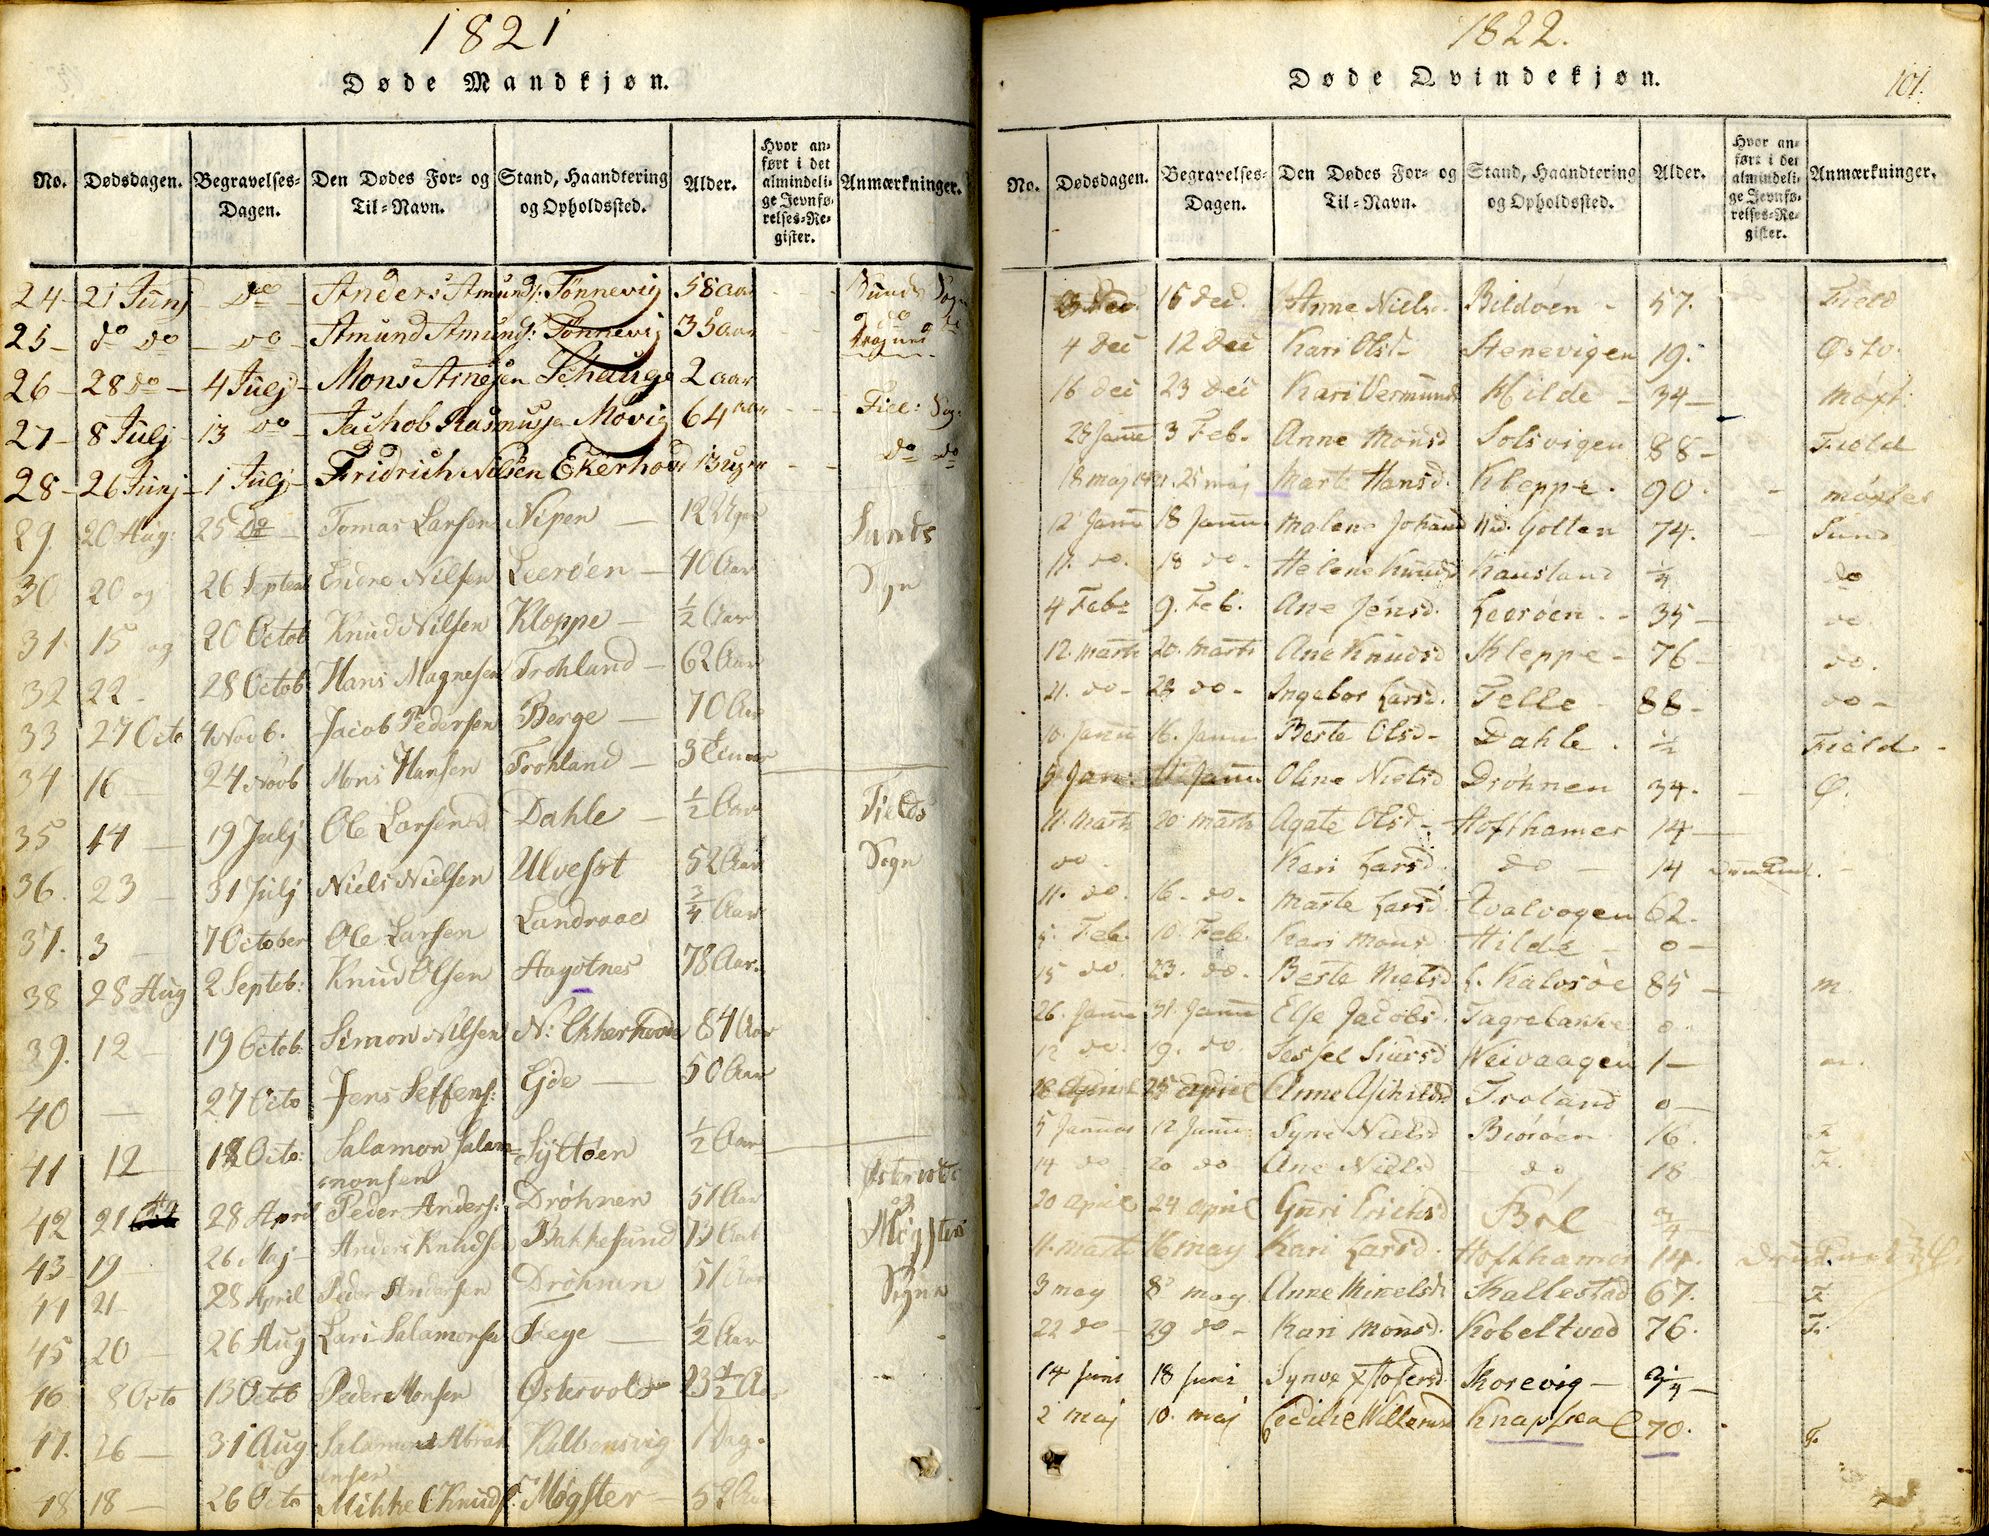 1821
Døde Mandkjøn.
No. Dødsdagen. Begravelses-Dagen. Den Dødes For- og Til-Navn. Stand, Haandtering og Opholdssted. Alder. Hvor anført i det almindelige Jevnførelses-Register. Anmærkninger.
24 - 21 Junj - do - Anders Amunds: Tønnevig 58 aar Sunds Sogn
25 - do do - do - Amund Amunds: Tønnevig 35 aar do do
26 - 28 do - 4 Julj - Mons Arnesen Schauge 2 aar
27 - 8 Julj - 13 do - Jachob Rasmussen Movig 64 aar Fiel: Sog:
28 - 26 Junj - 1 Julj - Fridrich Nilsen Ekerhovd 13 uger do do
29. 20 Aug: 25 do - Tomas Larsen Nipen - 12 Uger Sunds
30 20 og 26 Septem Endre Nilsen Leerøen - 40 Aar Sogn
31. 15 og 20 Octob Knud Nilsen Kleppe - 1/2 Aar
32 22 - 28 Octob Hans Magnesen Trohland - 62 Aar
33 27 Octo 4 Novb. Jacob Pedersen Berge - 70 Aar
34 16 - 24 Novb Mons Hansen Trohland - 3
35 14 - 19 Julj Ole Larsen Dahle - 1/2 Aar Fields
36. 23 - 31 Julj Niels Nielsen Ulveset 52 Aar Sogn
37. 3 - 7 October Ole Larsen Landraae 3/4 Aar
38 28 Aug 2 Septeb: Knud Olsen Aagotnes 78 Aar.
39. 12 - 19 Octob: Simon Nilsen N: Ekkerhovde 84 Aar
40 - 27 Octo Jens Steffens: Gjde - 50 Aar
41 12 18 Octo: Salamon Salamonsen Syltøen 1/2 Aar
42 21 28 April Peder Anders: Drøhnen 51 Aar Østervolds
43 19 26 Maj - Anders Knudsen Bakkesund 73 Aar Møgsters
44 21 28 April Peder Andersen Drøhnen 51 Aar Sogne
45 20 - 26 Aug Lars Salamonsen Træge - 1/2 Aar
46 8 Octo 13 Octb Peder Monsen Østervold 23 1/2 Aar
47. 26 - 31 Aug Salamon Abrahamsen Kalvensvig 1 Dag.
48 18 - 26 Octo Mikkel Knuds: Møgster - 52 Aar
1822.
Døde Qvindekjøn.
101.
No. Dødsdagen. Begravelses-Dagen. Den Dødes For- og Til-Navn. Stand, Haandtering og Opholdssted. Alder. Hvor anført i det almindelige Jevnførelses-Register. Anmærkninger.
Dec. 15 dec. Anne Nielsd. Bildøen - 57. Field
4 dec 12 dec Kari Olsd - Stenevigen 19. Østv.
16 dec 23 dec Kari Vermunds Hilde - 34 - Møgst.
28 Janu 3 Feb. Anne Monsd Solsvigen 88 - Field
18 maj 25 maj Marte Hansd. Kleppe. 90. møgster
12 Janu 18 Janu Malene Johansd Golten 74. Sund
11. do. 18 do. Helene Knudsd Kausland 1/4 do
4 Feb: 9. Feb. Ane Jensd. Leerøen. - 35 - do.
12. marts 20. marts Ane Knudsd Kleppe - 76 - do.
21. do - 28 do - Ingebor Larsd. Telle - 88 - do -
10. Janu 16. Janu Berte Olsd - Dahle. 1/2 Field -
5 Jan. Janu Oline Nielsd Drøhnen 34. Ø.
11. Marts 20. marts Agate Olsd - Hofthamer 14 -
do. Kari Larsd. do - 14
11. do. 16. do. Marte Larsd. Qvalvogen 62.
5. Feb. 10. Feb. Kari Monsd. Hilde - 0 -
15 do. 23. do. Berte Nielsd L. Kalvsøe 85 - m.
26. Janu 31. Janu Else Jacobs. Tagrebakke 0.
12 do. 19. do. Sessel Siursd Weivaagen 1 - m.
18 April 25 april Anne Troland 0 -
5 Januar 12 Janua Syne Nielsd Biørøen 16. F.
14 do 20 do - Ane Nielsd - do 18 F.
20 April 24 april Guri Erichsd Bøl 3/4 -
11. Marts 16 may Kari Larsd. Hofthamer 14.
3 may 8 may Anne Mikelsd Skallestad 67. F.
22 do - 29 do - Kari Monsd. Kobeltved 76. F.
14 Juni 18 Juni Synve Skorevig -
2 maj 10. maj Cecilie Willumsd Knapskal 70. F.